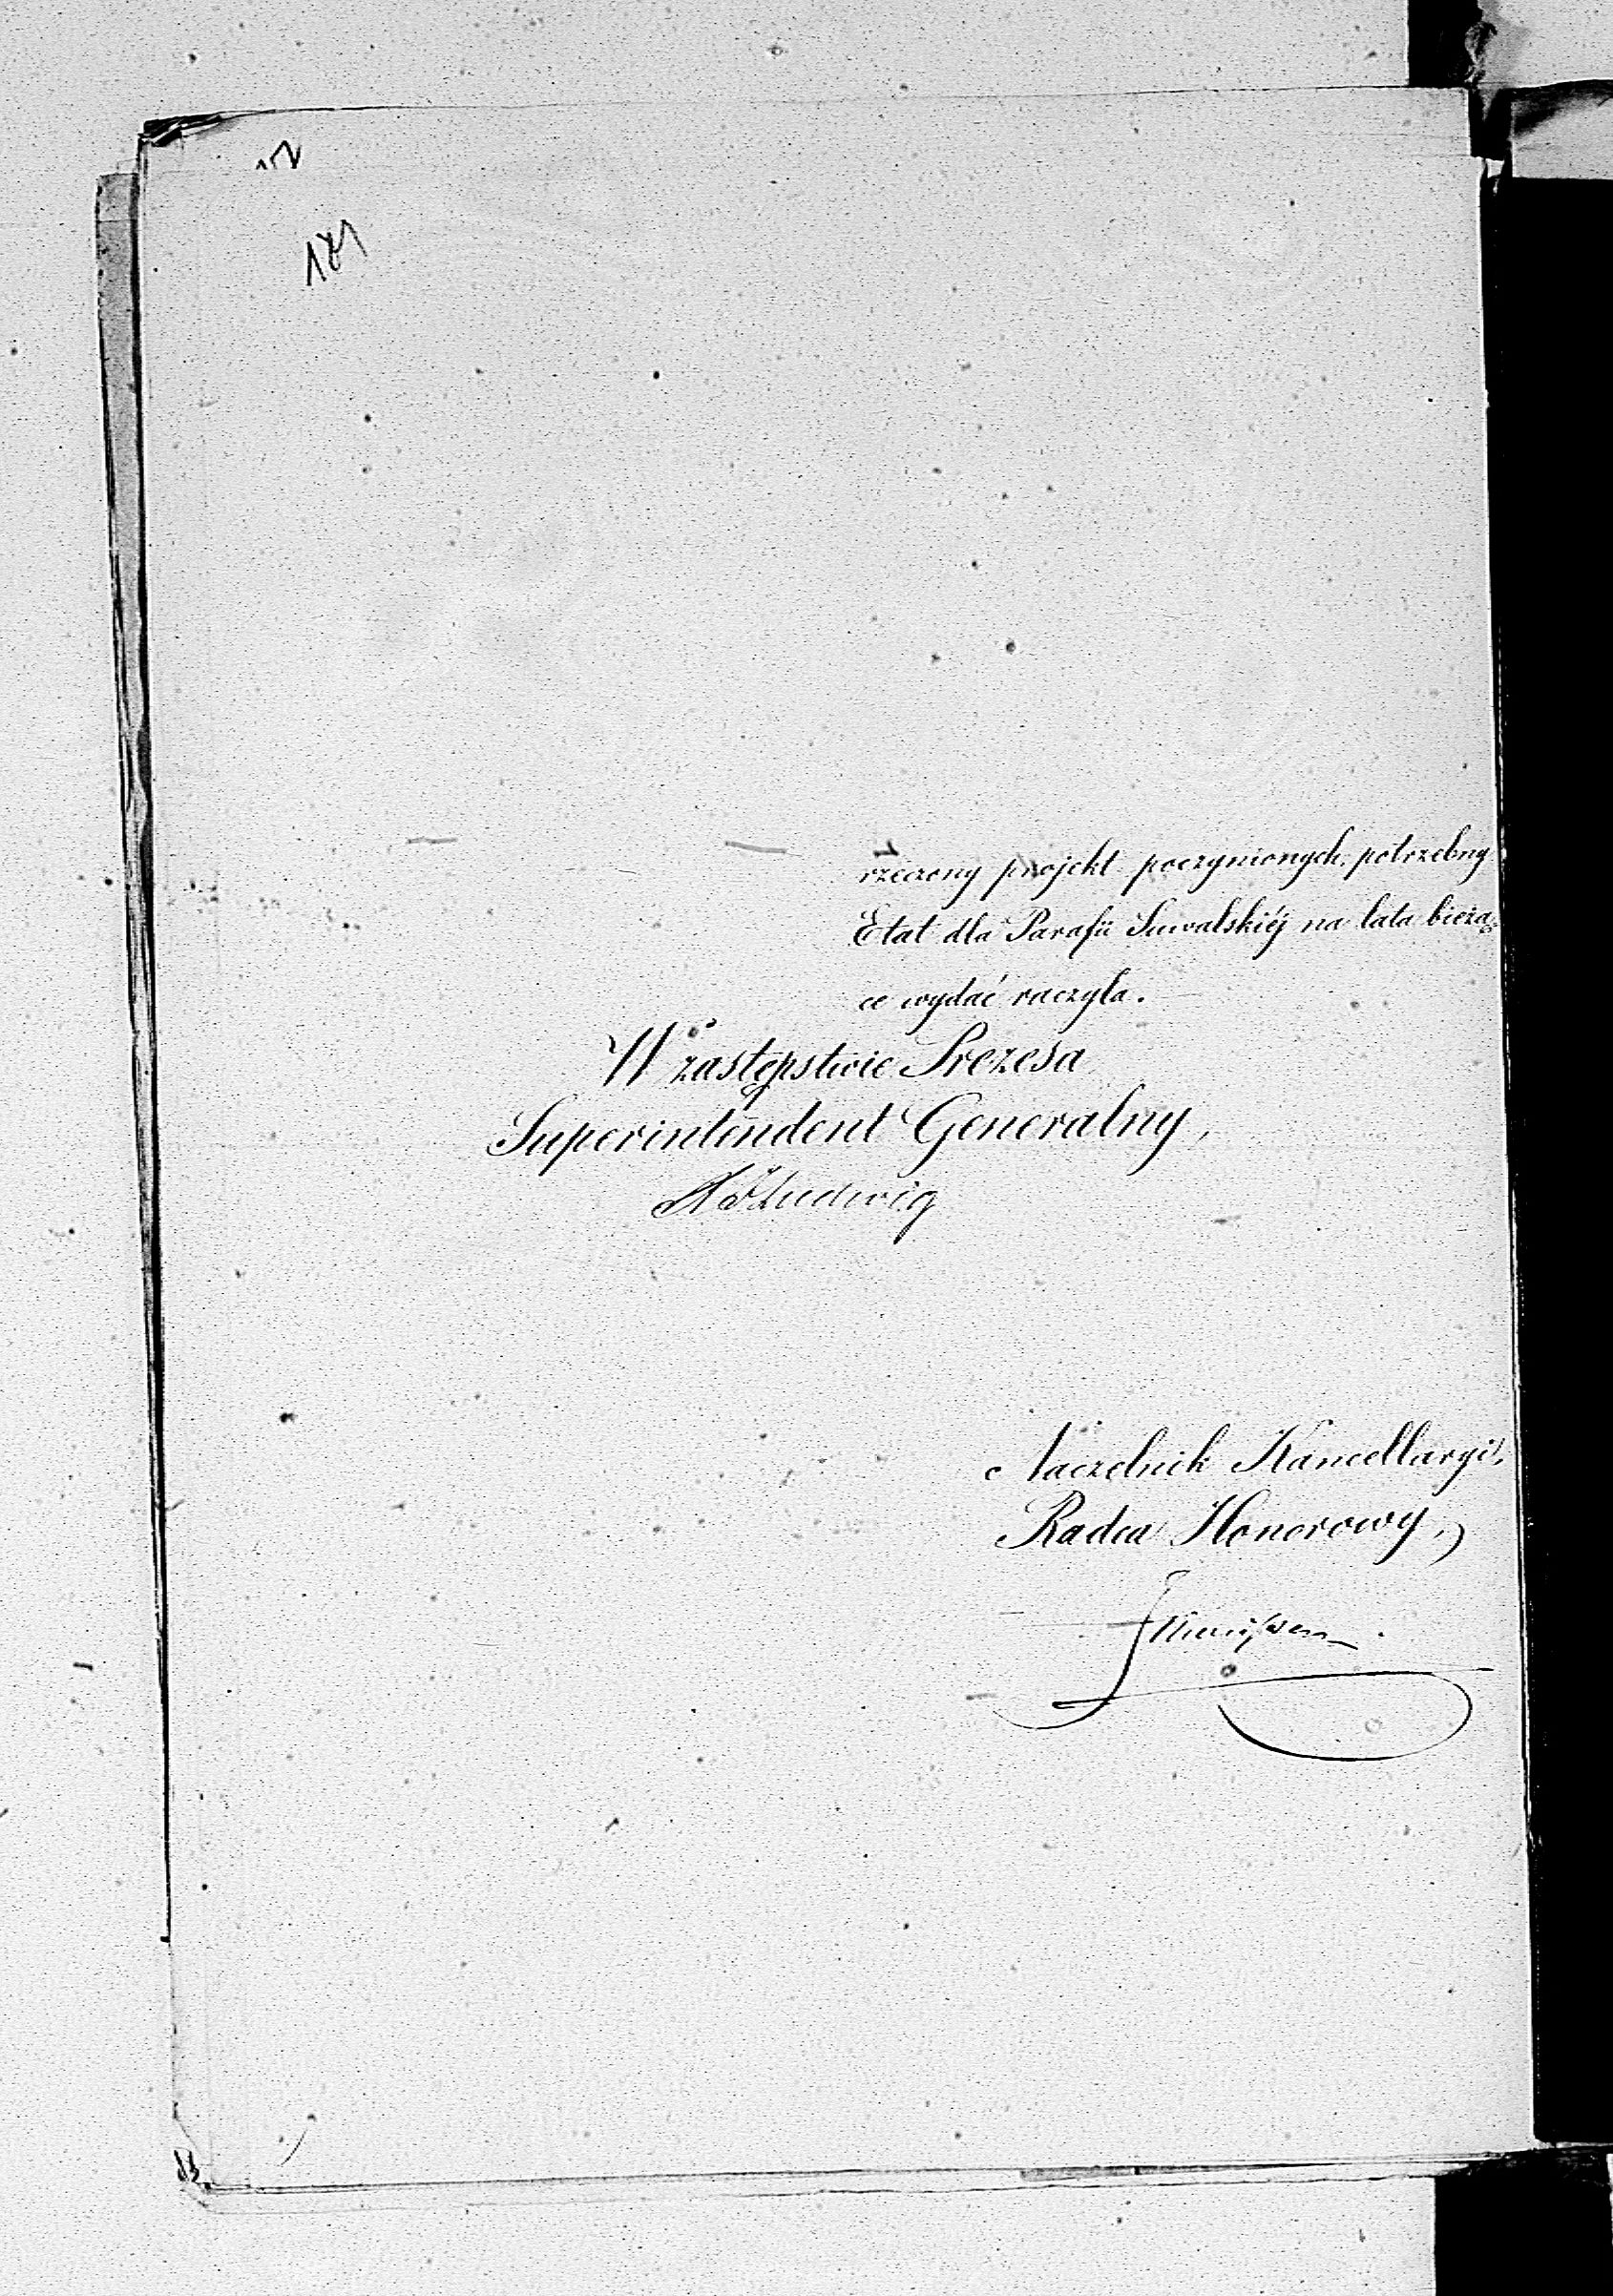 181
rzeczony projekt poczynionych, potrzebny
Etat dla Parafii Suwalskiéj na lata bieżą=
ce wydać raczyła.
W zastępstwie Prezesa
Superintendent Generalny,
Ludwig
Naczelnik Kancellaryi,
Radca Honorowy,